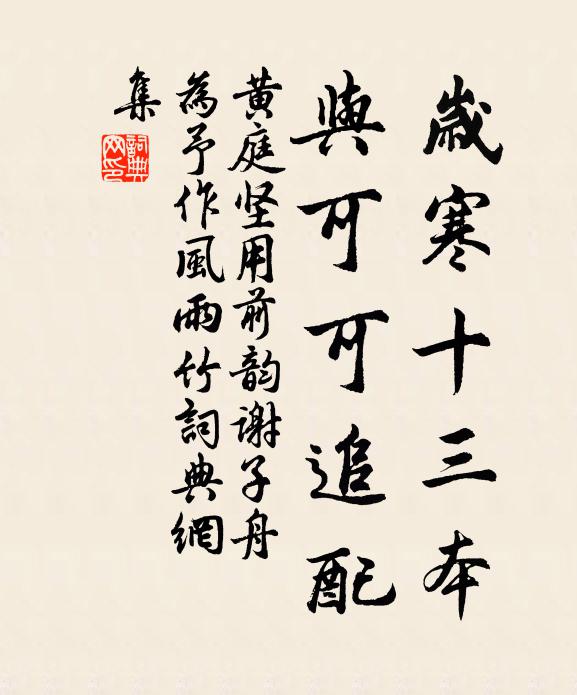 歲寒十三本
與可可追配
黄庭坚用前韵謝子舟
為予作風雨竹詞典網
集
詞典網印